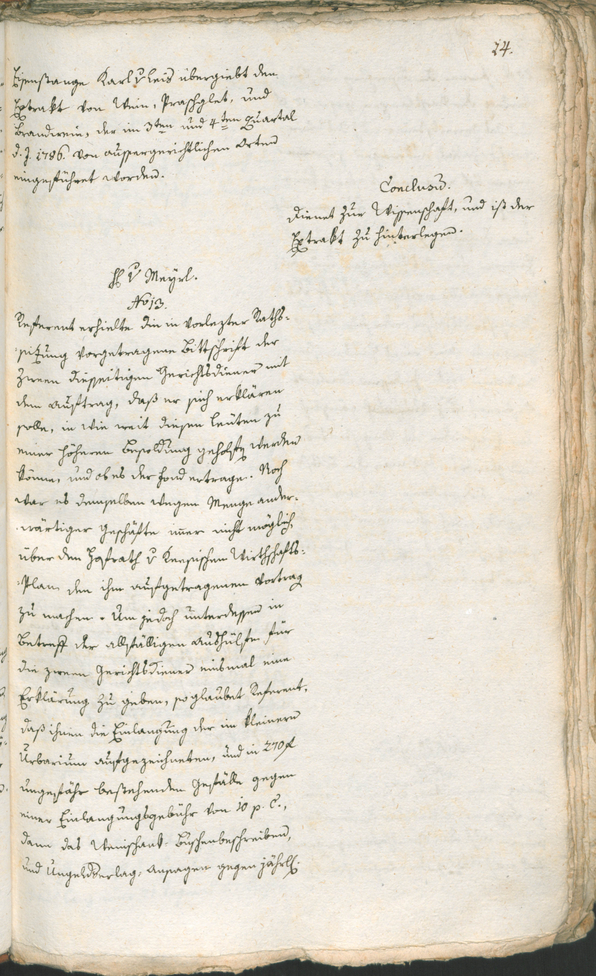 24.
Eisenstange Karl v Leis übergiebt den
Extrakt von Wein, Praschglet, und
Brandwein, der im 3ten und 4ten Quartal
d. J. 1796. von aussergerichtlichen Orten
eingeführet worden.
Conclusū.
Dienet zur Wissenschaft, und ist der
Extrakt zu hinterlegen.
H v Meyrl.
No 13.
Referent erhielte die in vorlezter Raths-
sitzung vorgetragene Bittschrift der
zween diesseitigen Gerichtsdiener mit
dem Auftrag, daß er sich erklären
solle, in wie weit diesen Leuten zu
einer höhern Besoldung geholfen werden
könne, und ob es der Fond ertrage. Noch
war es demselben wegen Menge ander-
wärtiger Geschäfte imer nicht möglich
über den Hofrath v Wirthschafts-
Plan den ihm aufgetragenen Vortrag
zu machen. Um jedoch unterdessen in
Betreff der allfälligen Aushülfe für
die zween Gerichtsdiener einsmal eine
Erklärung zu geben, so glaubet Referent,
daß ihnen die Einlangung der im kleinern
Urbarium aufgezeichneten, und in 270 f
ungefähr bestehenden Gefälle gegen
einer Einlangungsgebühr von 10 p. C.,
dann das Weinschank-Buschenbeschreiben,
und Ansagen gegen jährl.